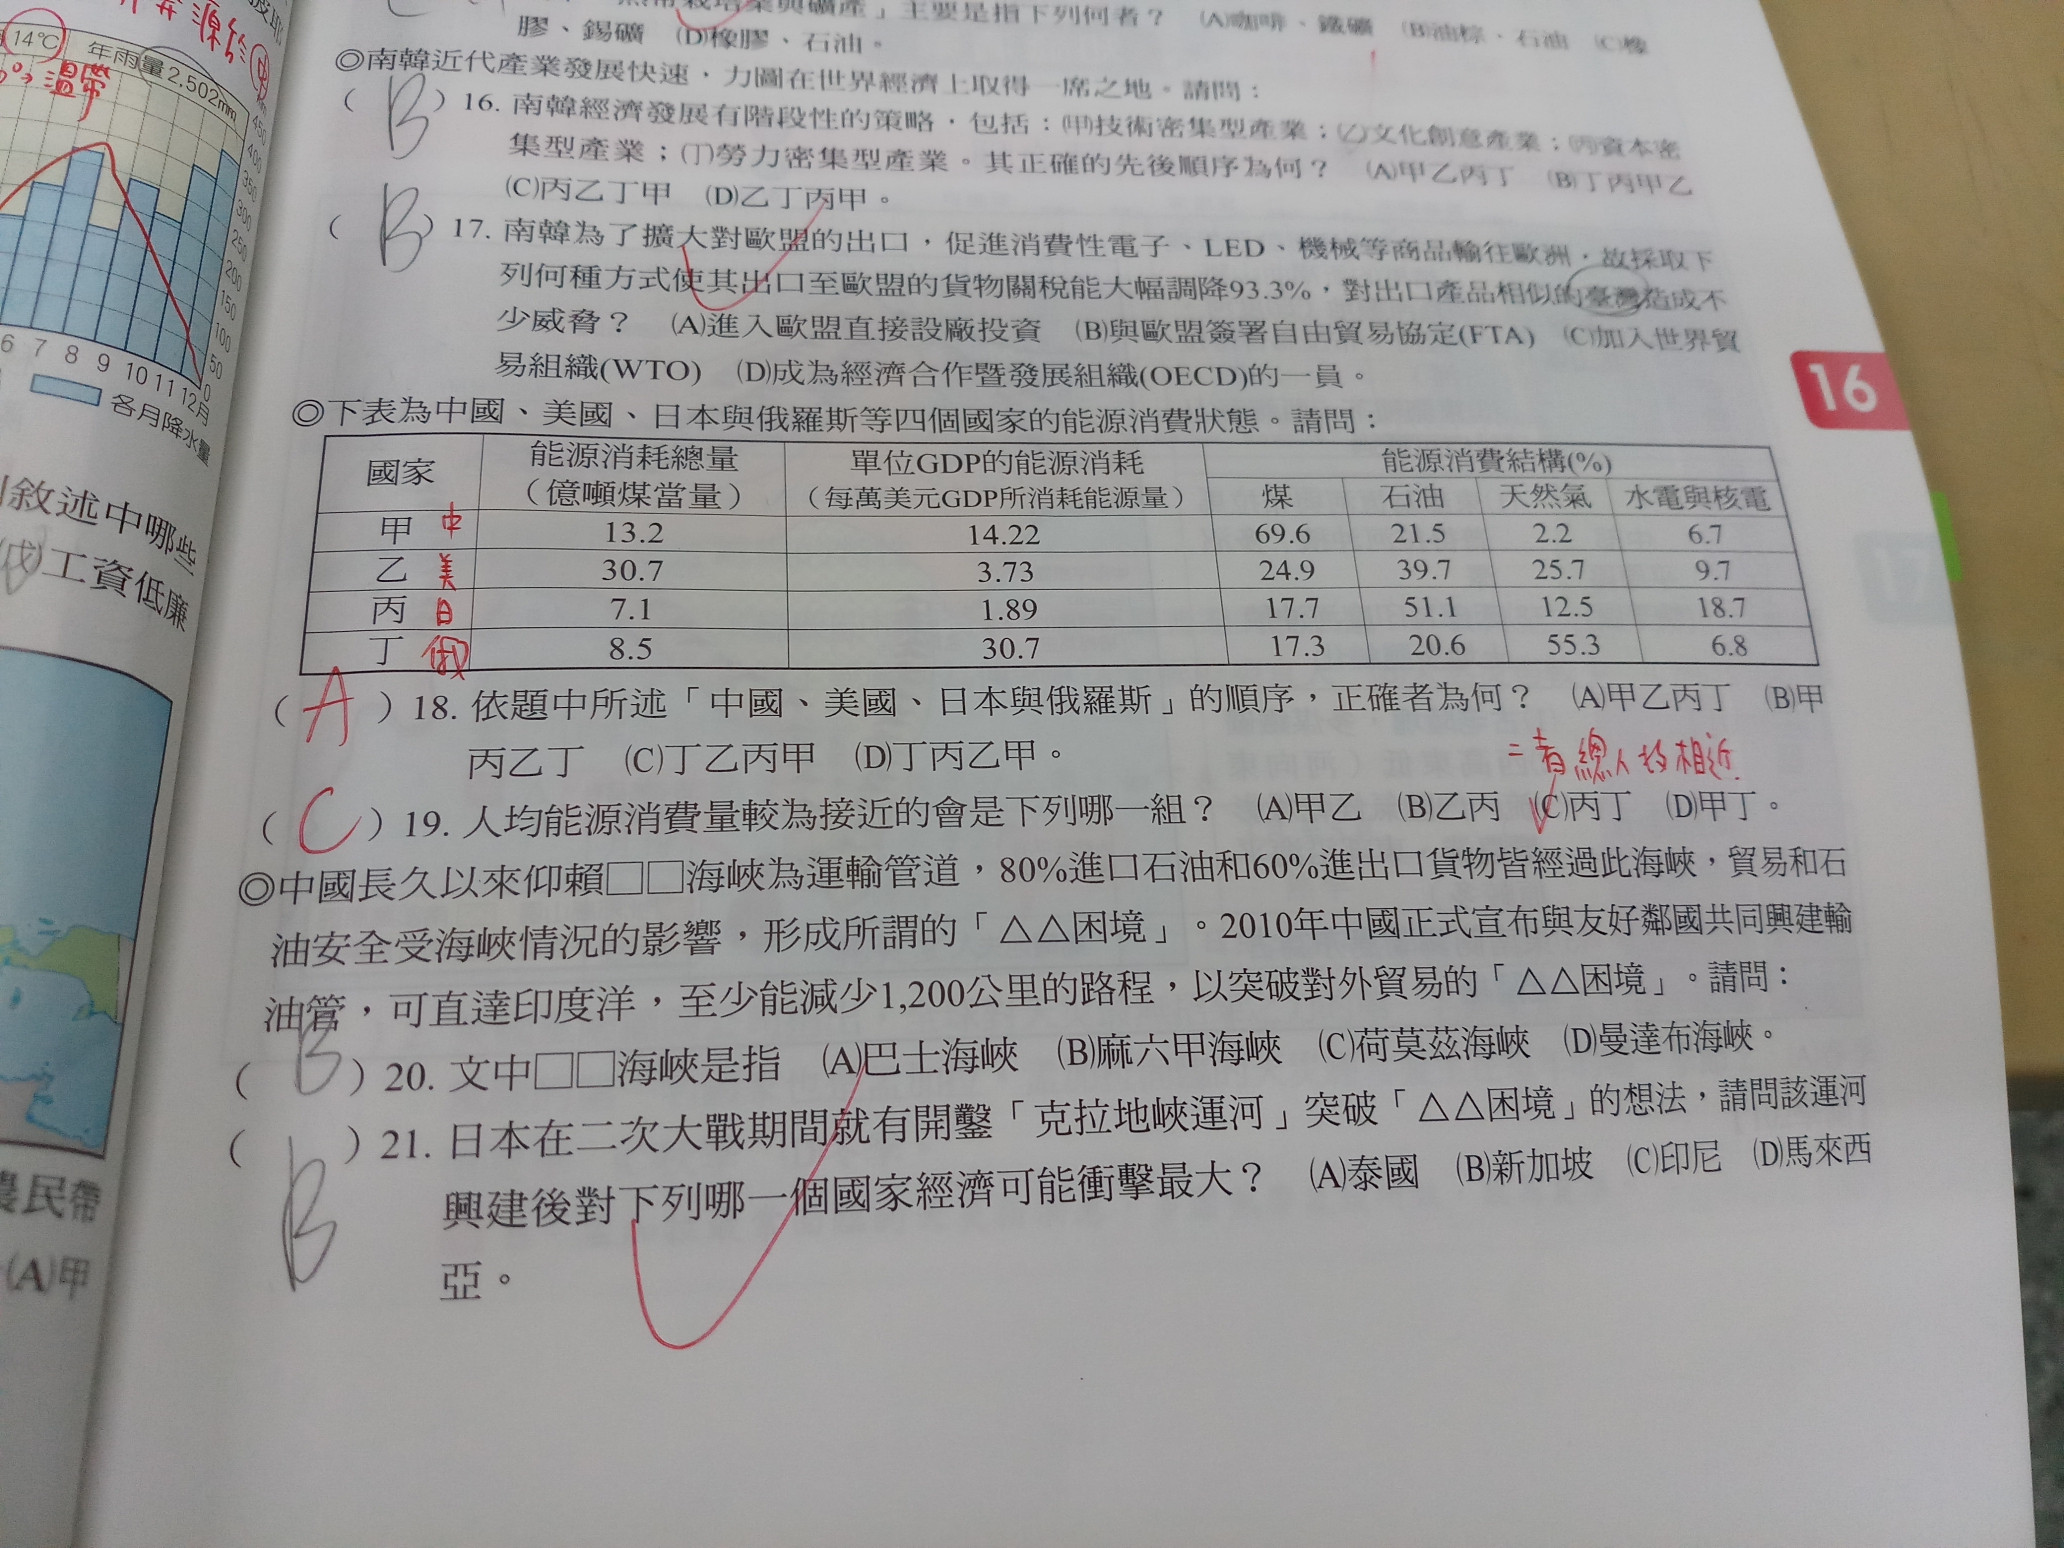 14°C
年雨量2,502mm
溫帶
450
400
350
300
250
200
150
100
50
0
6 7 8 9 10 11 12月
各月降水量
敘述中哪些
(戊)工資低廉
農民帶
(A)甲
栽培業與礦產」主要是指下列何者? (A)咖啡、鐵礦 (B)油棕、石油 (C)橡
膠、錫礦 (D)橡膠、石油。
◎南韓近代產業發展快速,力圖在世界經濟上取得一席之地。請問:
( B ) 16. 南韓經濟發展有階段性的策略,包括:(甲)技術密集型產業;(乙)文化創意產業;(丙)資本密
集型產業;(丁)勞力密集型產業。其正確的先後順序為何? (A)甲乙丙丁 (B)丁丙甲乙
(C)丙乙丁甲 (D)乙丁丙甲。
( B ) 17. 南韓為了擴大對歐盟的出口,促進消費性電子、LED、機械等商品輸往歐洲,故採取下
列何種方式使其出口至歐盟的貨物關稅能大幅調降93.3%,對出口產品相似的臺灣造成不
少威脅? (A)進入歐盟直接設廠投資 (B)與歐盟簽署自由貿易協定(FTA) (C)加入世界貿
易組織(WTO) (D)成為經濟合作暨發展組織(OECD)的一員。
16
◎下表為中國、美國、日本與俄羅斯等四個國家的能源消費狀態。請問:
國家 能源消耗總量(億噸煤當量) 單位GDP的能源消耗(每萬美元GDP所消耗能源量) 能源消費結構(%)
煤 石油 天然氣 水電與核電
甲 中 13.2 14.22 69.6 21.5 2.2 6.7
乙 美 30.7 3.73 24.9 39.7 25.7 9.7
丙 日 7.1 1.89 17.7 51.1 12.5 18.7
丁 俄 8.5 30.7 17.3 20.6 55.3 6.8
( A ) 18. 依題中所述「中國、美國、日本與俄羅斯」的順序,正確者為何? (A)甲乙丙丁 (B)甲
丙乙丁 (C)丁乙丙甲 (D)丁丙乙甲。
二者總人均相近
( C ) 19. 人均能源消費量較為接近的會是下列哪一組? (A)甲乙 (B)乙丙 (C)丙丁 (D)甲丁。
◎中國長久以來仰賴□□海峽為運輸管道,80%進口石油和60%進出口貨物皆經過此海峽,貿易和石
油安全受海峽情況的影響,形成所謂的「△△困境」。2010年中國正式宣布與友好鄰國共同興建輸
油管,可直達印度洋,至少能減少1,200公里的路程,以突破對外貿易的「△△困境」。請問:
( B ) 20. 文中□□海峽是指 (A)巴士海峽 (B)麻六甲海峽 (C)荷莫茲海峽 (D)曼達布海峽。
( B ) 21. 日本在二次大戰期間就有開鑿「克拉地峽運河」突破「△△困境」的想法,請問該運河
興建後對下列哪一個國家經濟可能衝擊最大? (A)泰國 (B)新加坡 (C)印尼 (D)馬來西
亞。